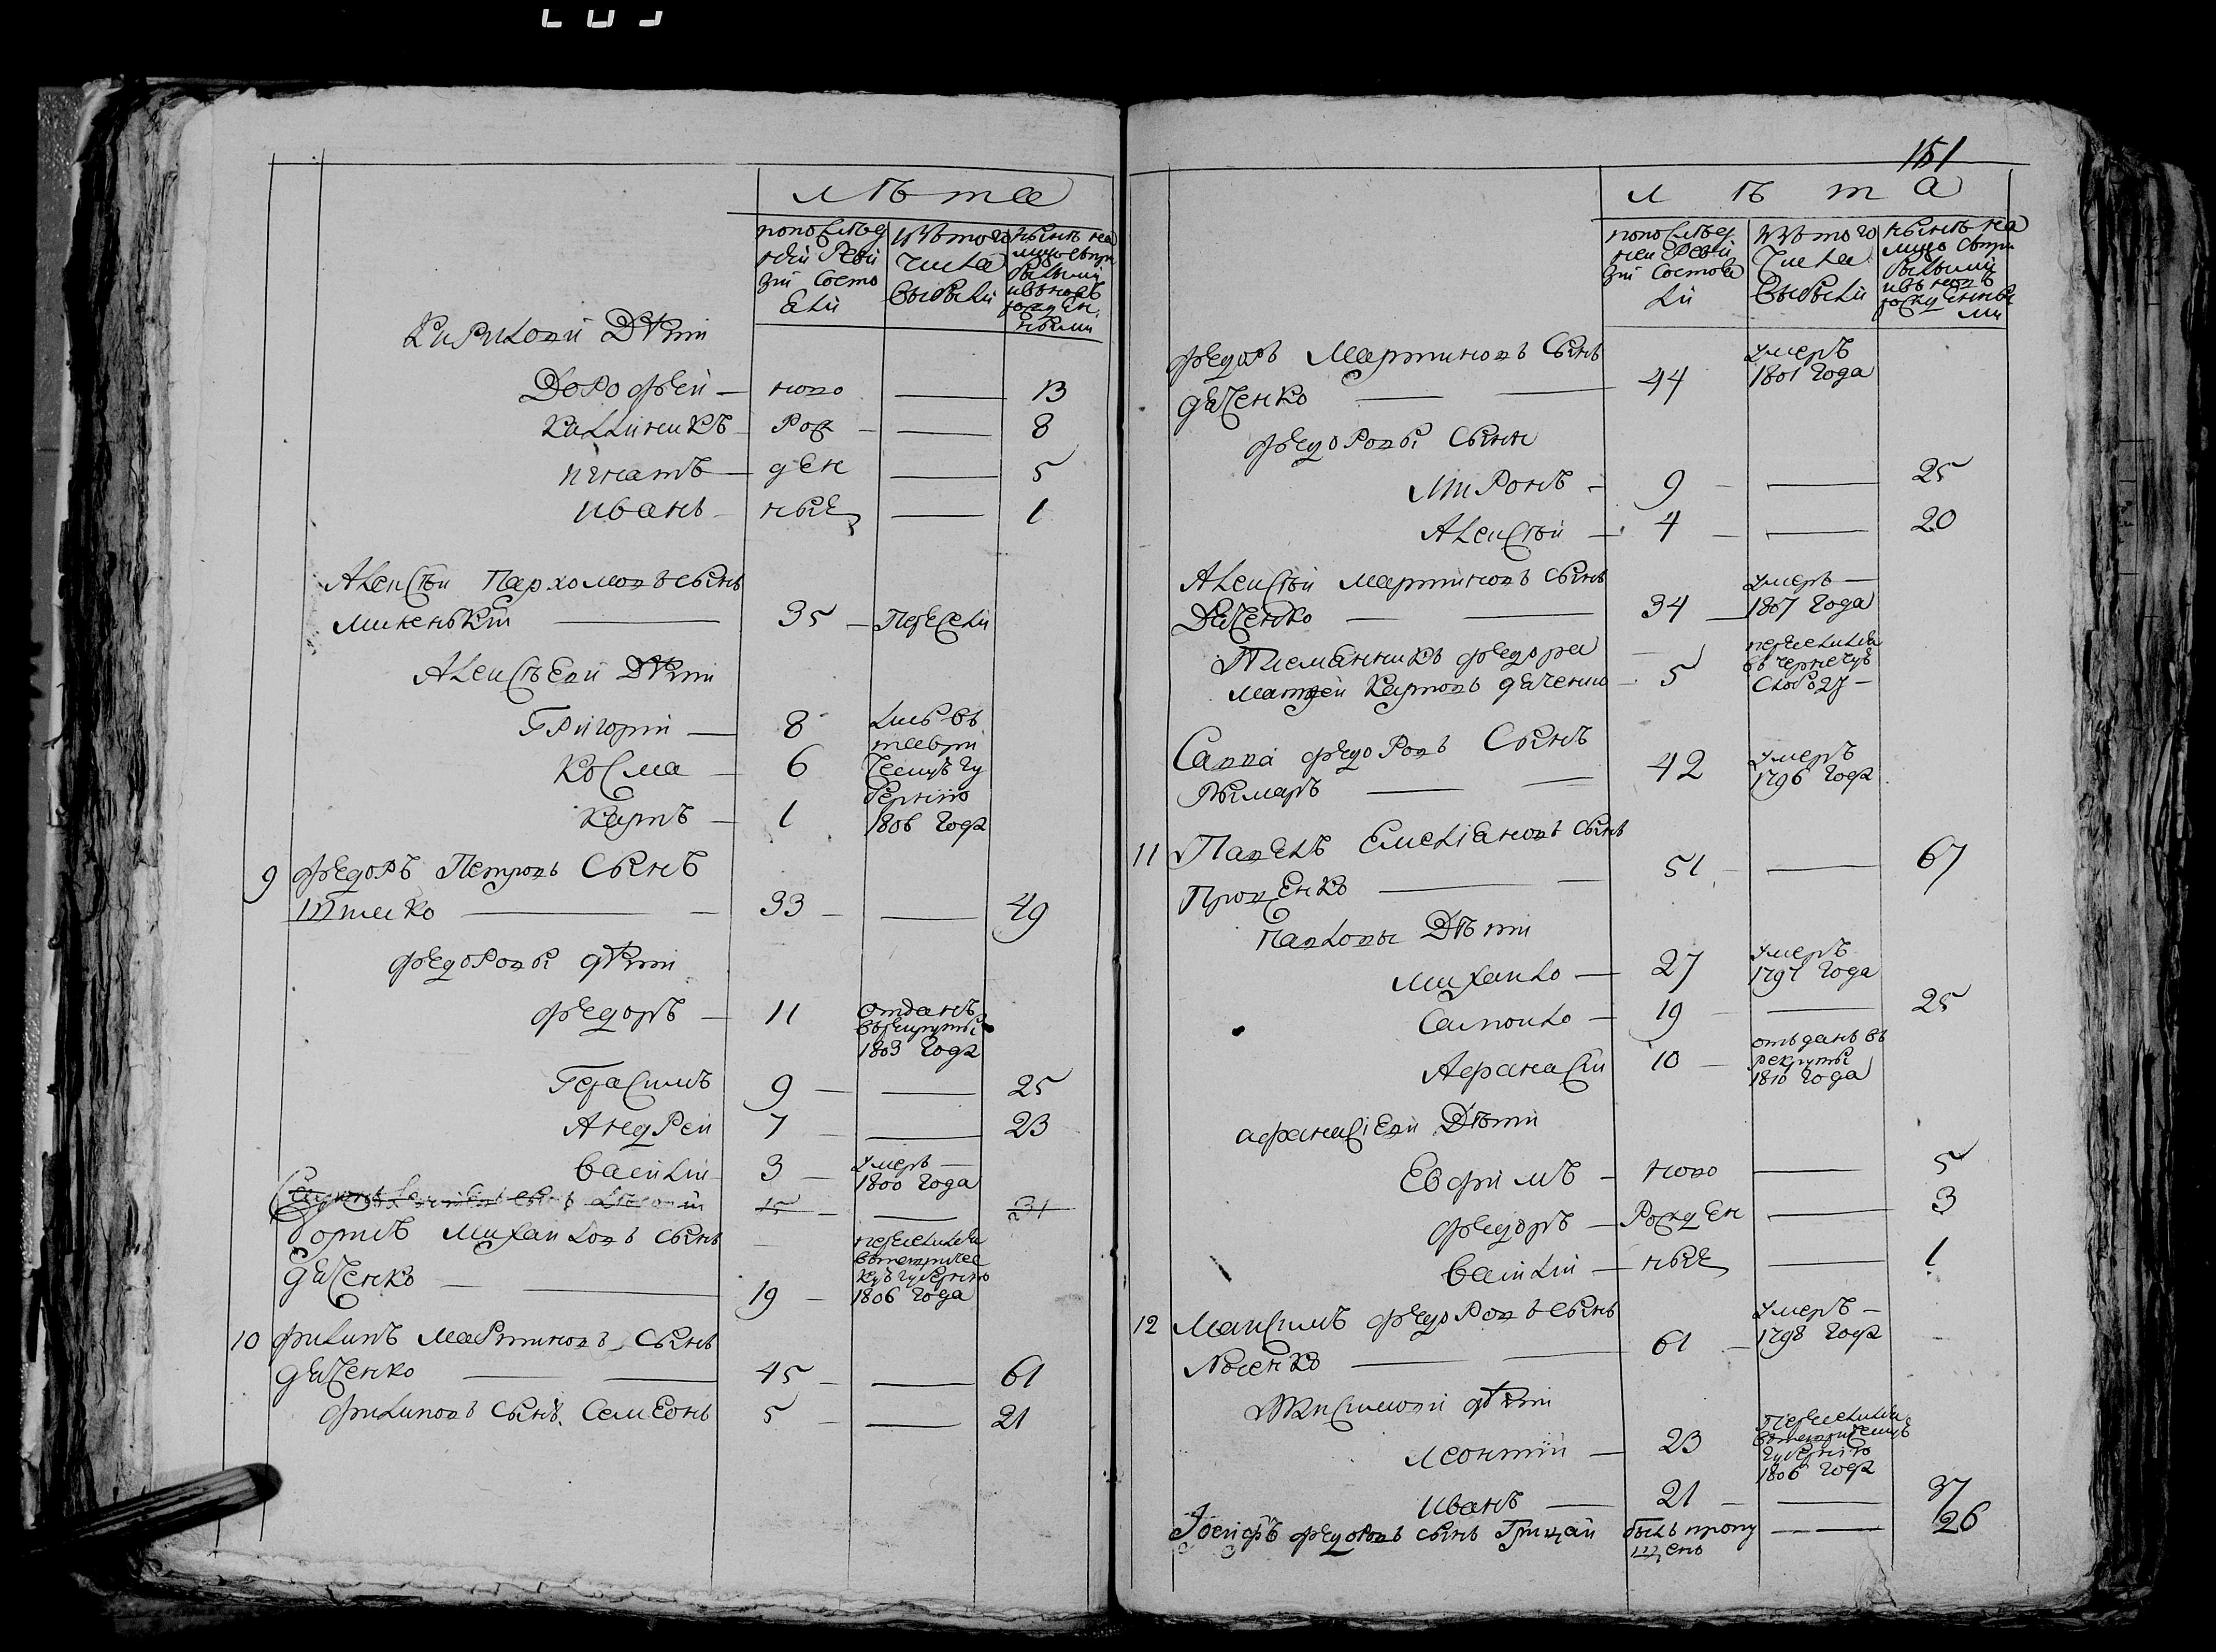 лѣта
попослѣд
ней Реви
зіи Состо
яли
изъ того
Числа
выбыли
нынѣ на
лицо съпри
былыми
ивъновь
рожден
ными
Кириловы Дѣти
Дорофей — ново — 13
Каллиникъ — рож — 8
игнатъ — ден — 5
иванъ — ные — 1
Алексѣй Пархомовъ сынъ
Миненькій — 35 — Пересели
Алексѣевы Дѣти
Григорій — 8 лись въ
Косма — 6 таври
ческую гу
Карпъ — 1 бернію
1806 года
9 федоръ Петровъ Сынъ
Ішъчко — 33 — — 49
федоровы дѣти
федоръ — 11 отданъ
въ рекруты
1803 года
Герасимъ 9 — — 25
Андрей 7 — — 23
василій 3 — умеръ —
1800 года
15 — — 31
борисъ Михайловъ сынъ — переселился
втавриче
дяченко — 19 — кую губернію
1806 года
10 филипъ Мартиновъ Сынъ
дяченко — 45 — — 61
филиповъ Сынъ Семеонъ 5 — — 21
151
л ѣ т а
попослѣд
ней Реви
зіи Состоя
ли
изъ того
Числа
выбыли
нынѣ на
лицо съпри
былыми
ивъновь
рожденны
ми
федоръ Мартиновъ Сынъ умеръ
дяченко — 44 1801 года
федоровы Сыны
Миронъ — 9 — — 25
Алексѣй — 4 — — 20
Алексѣй Мартиновъ сынъ умеръ —
Дяченко — 34 — 1807 года
Племянникъ федора — переселился
Матвей Карповъ дяченко — 5 въ
Слободу —
Савва федоровъ Сынъ умеръ
Рымаръ — 42 1796 года
11 Павелъ Емеліановъ сынъ
Проценко — 51 — — 67
Павловы Дѣти
Михайло — 27 умеръ
1797 года
Самойло — 19 — — 25
Афанасій 10 — отъданъ въ
рекруты
1810 года
афанасіевы Дѣти
Евфимъ — ново — 5
федоръ — Рожден — 3
василій — ные — 1
12 Максимъ федоровъ сынъ умеръ —
61 — 1798 года
Максимовы дѣти
Леонтій — 23 Переселился
втаврическую
губернію
1806 года
иванъ — 21 — — 37
Іосифъ федоровъ сынъ Грицай былъ пропу — 26
щенъ